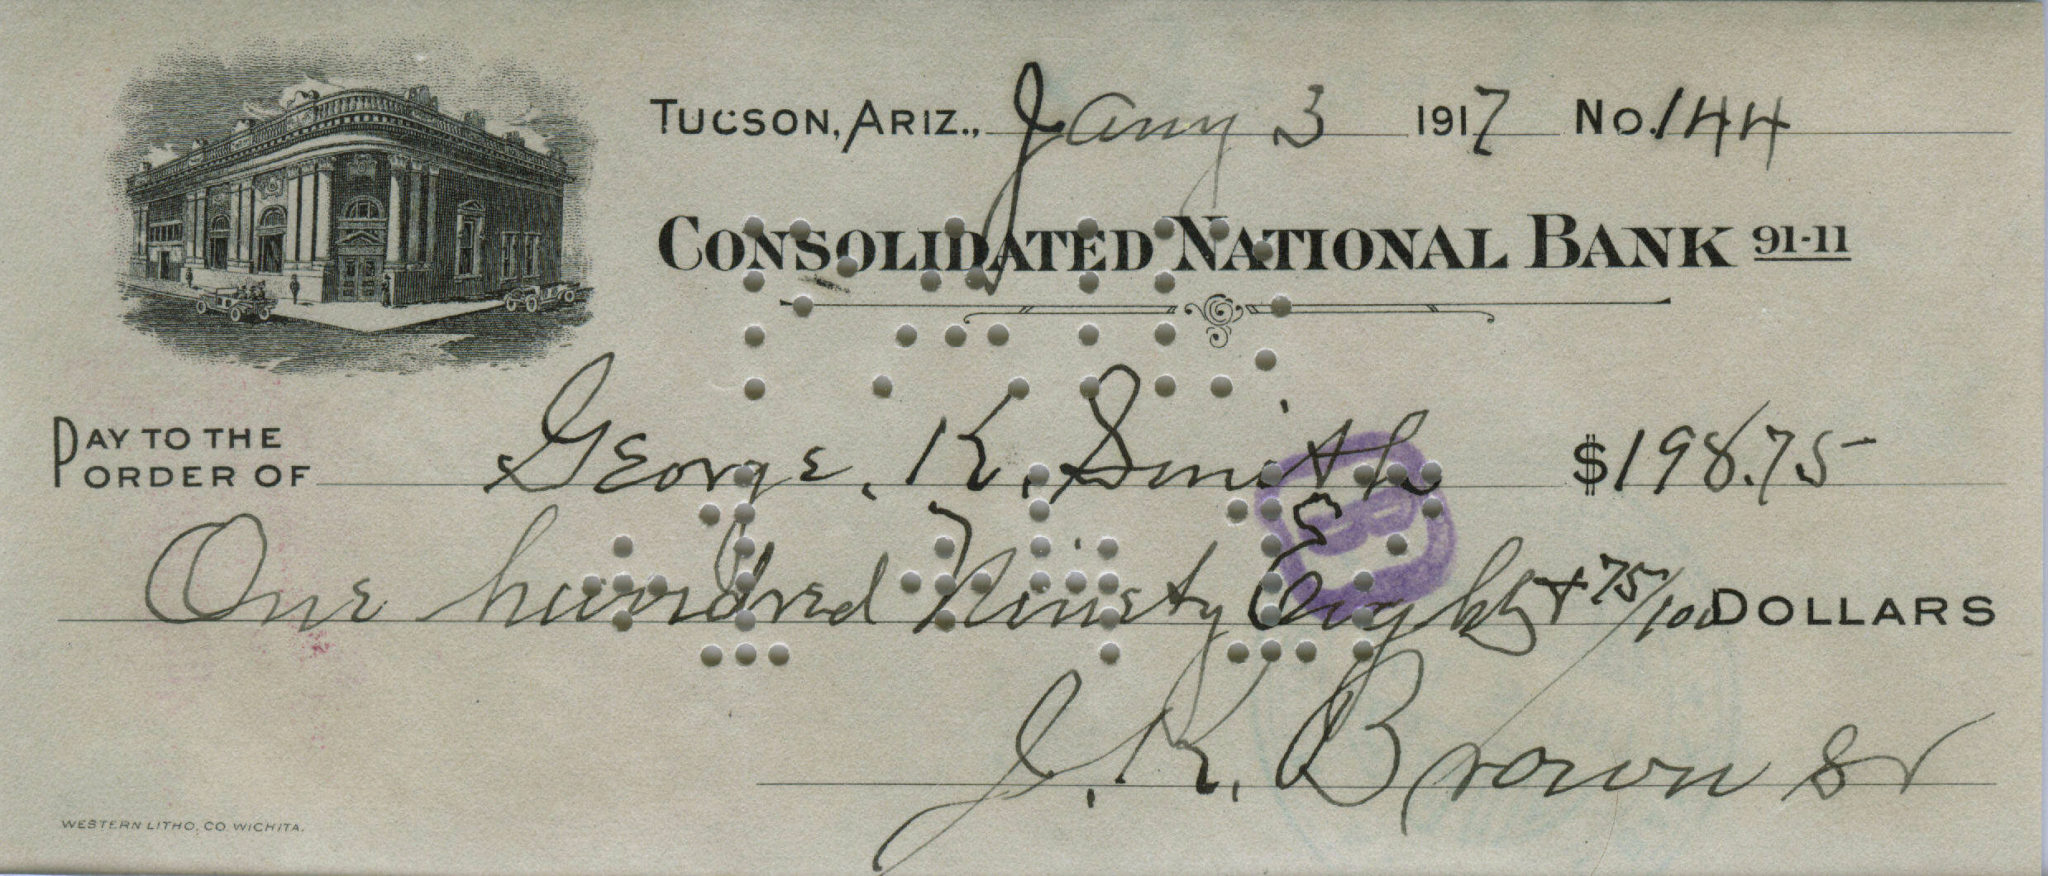 TUCSON, ARIZ., Jany 3 1917 No. 144
CONSOLIDATED NATIONAL BANK 91-11
PAY TO THE ORDER OF George. K. Smith $198.75
One hundred Ninety Eight & 75/100 DOLLARS
J. K. Brown Sr
WESTERN LITHO. CO WICHITA.
PAID